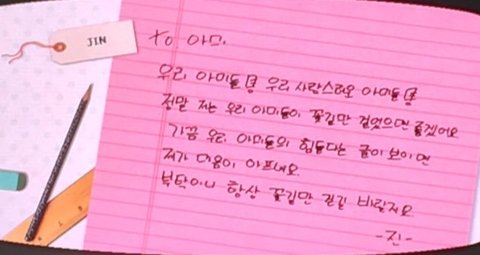 JIN
To 아미.
우리 아미들 우리 사랑스러운 아미들
정말 저는 우리 아미들이 꽃길만 걸었으면 좋겠어요
가끔 우리 아미들의 힘들다는 글이 보이면
저가 마음이 아프네요
부탁이니 항상 꽃길만 걷길 바랄게요
-진-